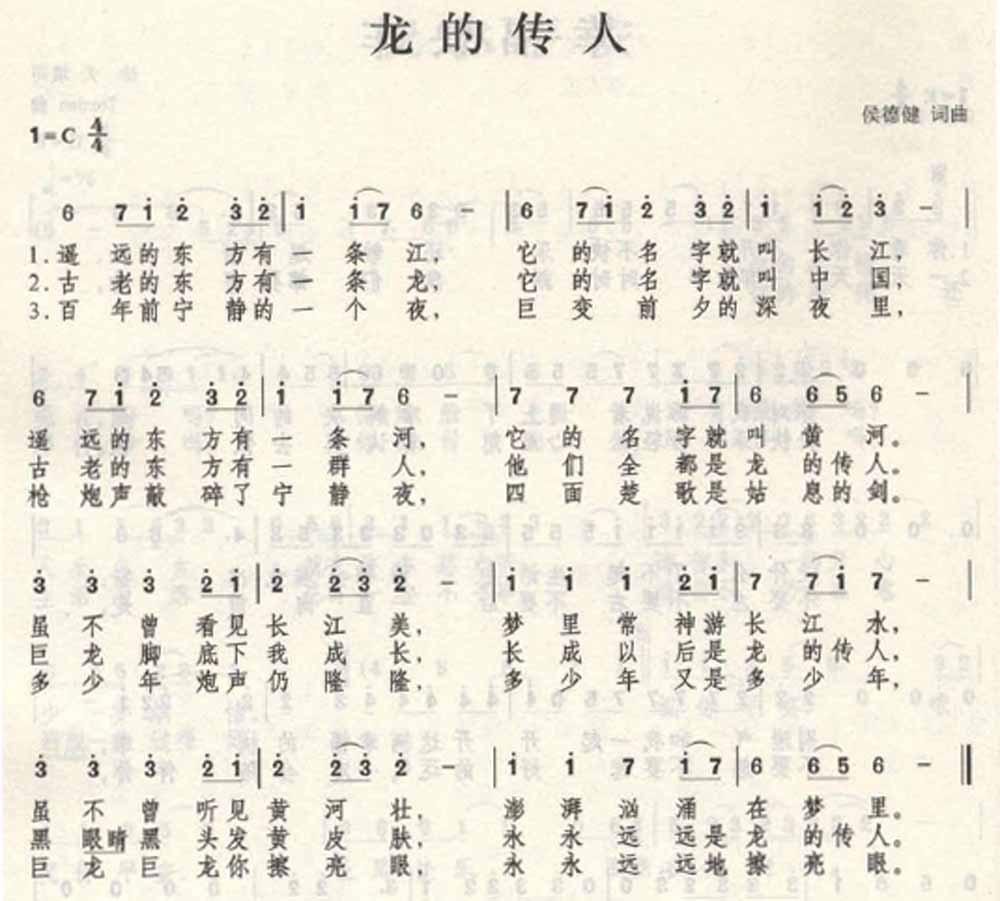 龙的传人
1=C 4/4
侯德健 词曲
6 7 1̇ 2̇ 3̇ 2̇ | 1̇ 1̇ 7 6 – | 6 7 1̇ 2̇ 3̇ 2̇ | 1̇ 1̇ 2̇ 3̇ – |
1.遥 远的东 方有一 条 江， 它 的 名 字就叫 长 江，
2.古 老的东 方有一 条 龙， 它 的 名 字就叫 中 国，
3.百 年前宁 静的一 个 夜， 巨 变 前 夕的深 夜 里，
6 7 1̇ 2̇ 3̇ 2̇ | 1̇ 1̇ 7 6 – | 7 7 7 1̇ 7 | 6 6 5 6 – |
遥 远的东 方有一 条 河， 它 的 名 字就叫 黄 河。
古 老的东 方有一 群 人， 他 们 全 都是龙 的传人。
枪 炮声敲 碎了宁 静 夜， 四 面 楚 歌是姑 息的剑。
3̇ 3̇ 3̇ 2̇ 1̇ | 2̇ 2̇ 3̇ 2̇ – | 1̇ 1̇ 1̇ 2̇ 1̇ | 7 7 1̇ 7 – |
虽 不 曾 看见长 江 美， 梦 里 常 神游长 江 水，
巨 龙 脚 底下我 成 长， 长 成 以 后是龙 的传 人，
多 少 年 炮声仍 隆 隆， 多 少 年 又是多 少 年，
3̇ 3̇ 3̇ 2̇ 1̇ | 2̇ 2̇ 3̇ 2̇ – | 1̇ 1̇ 7 1̇ 7 | 6 6 5 6 – ‖
虽 不 曾 听见黄 河 壮， 澎 湃 汹 涌 在 梦 里。
黑 眼睛黑 头发黄 皮 肤， 永 永 远 远是龙 的传 人。
巨 龙巨 龙你擦 亮 眼， 永 永 远 远地擦 亮 眼。